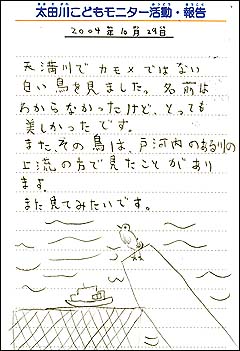 太田川こどもモニター活動・報告
2004年10月29日
天満川でカモメではない
白い鳥を見ました。名前は
わからなかったけど、とっても
美しかったです。
また、その鳥は、戸河内のある川の
上流の方で見たことがあり
ます。
また見てみたいです。